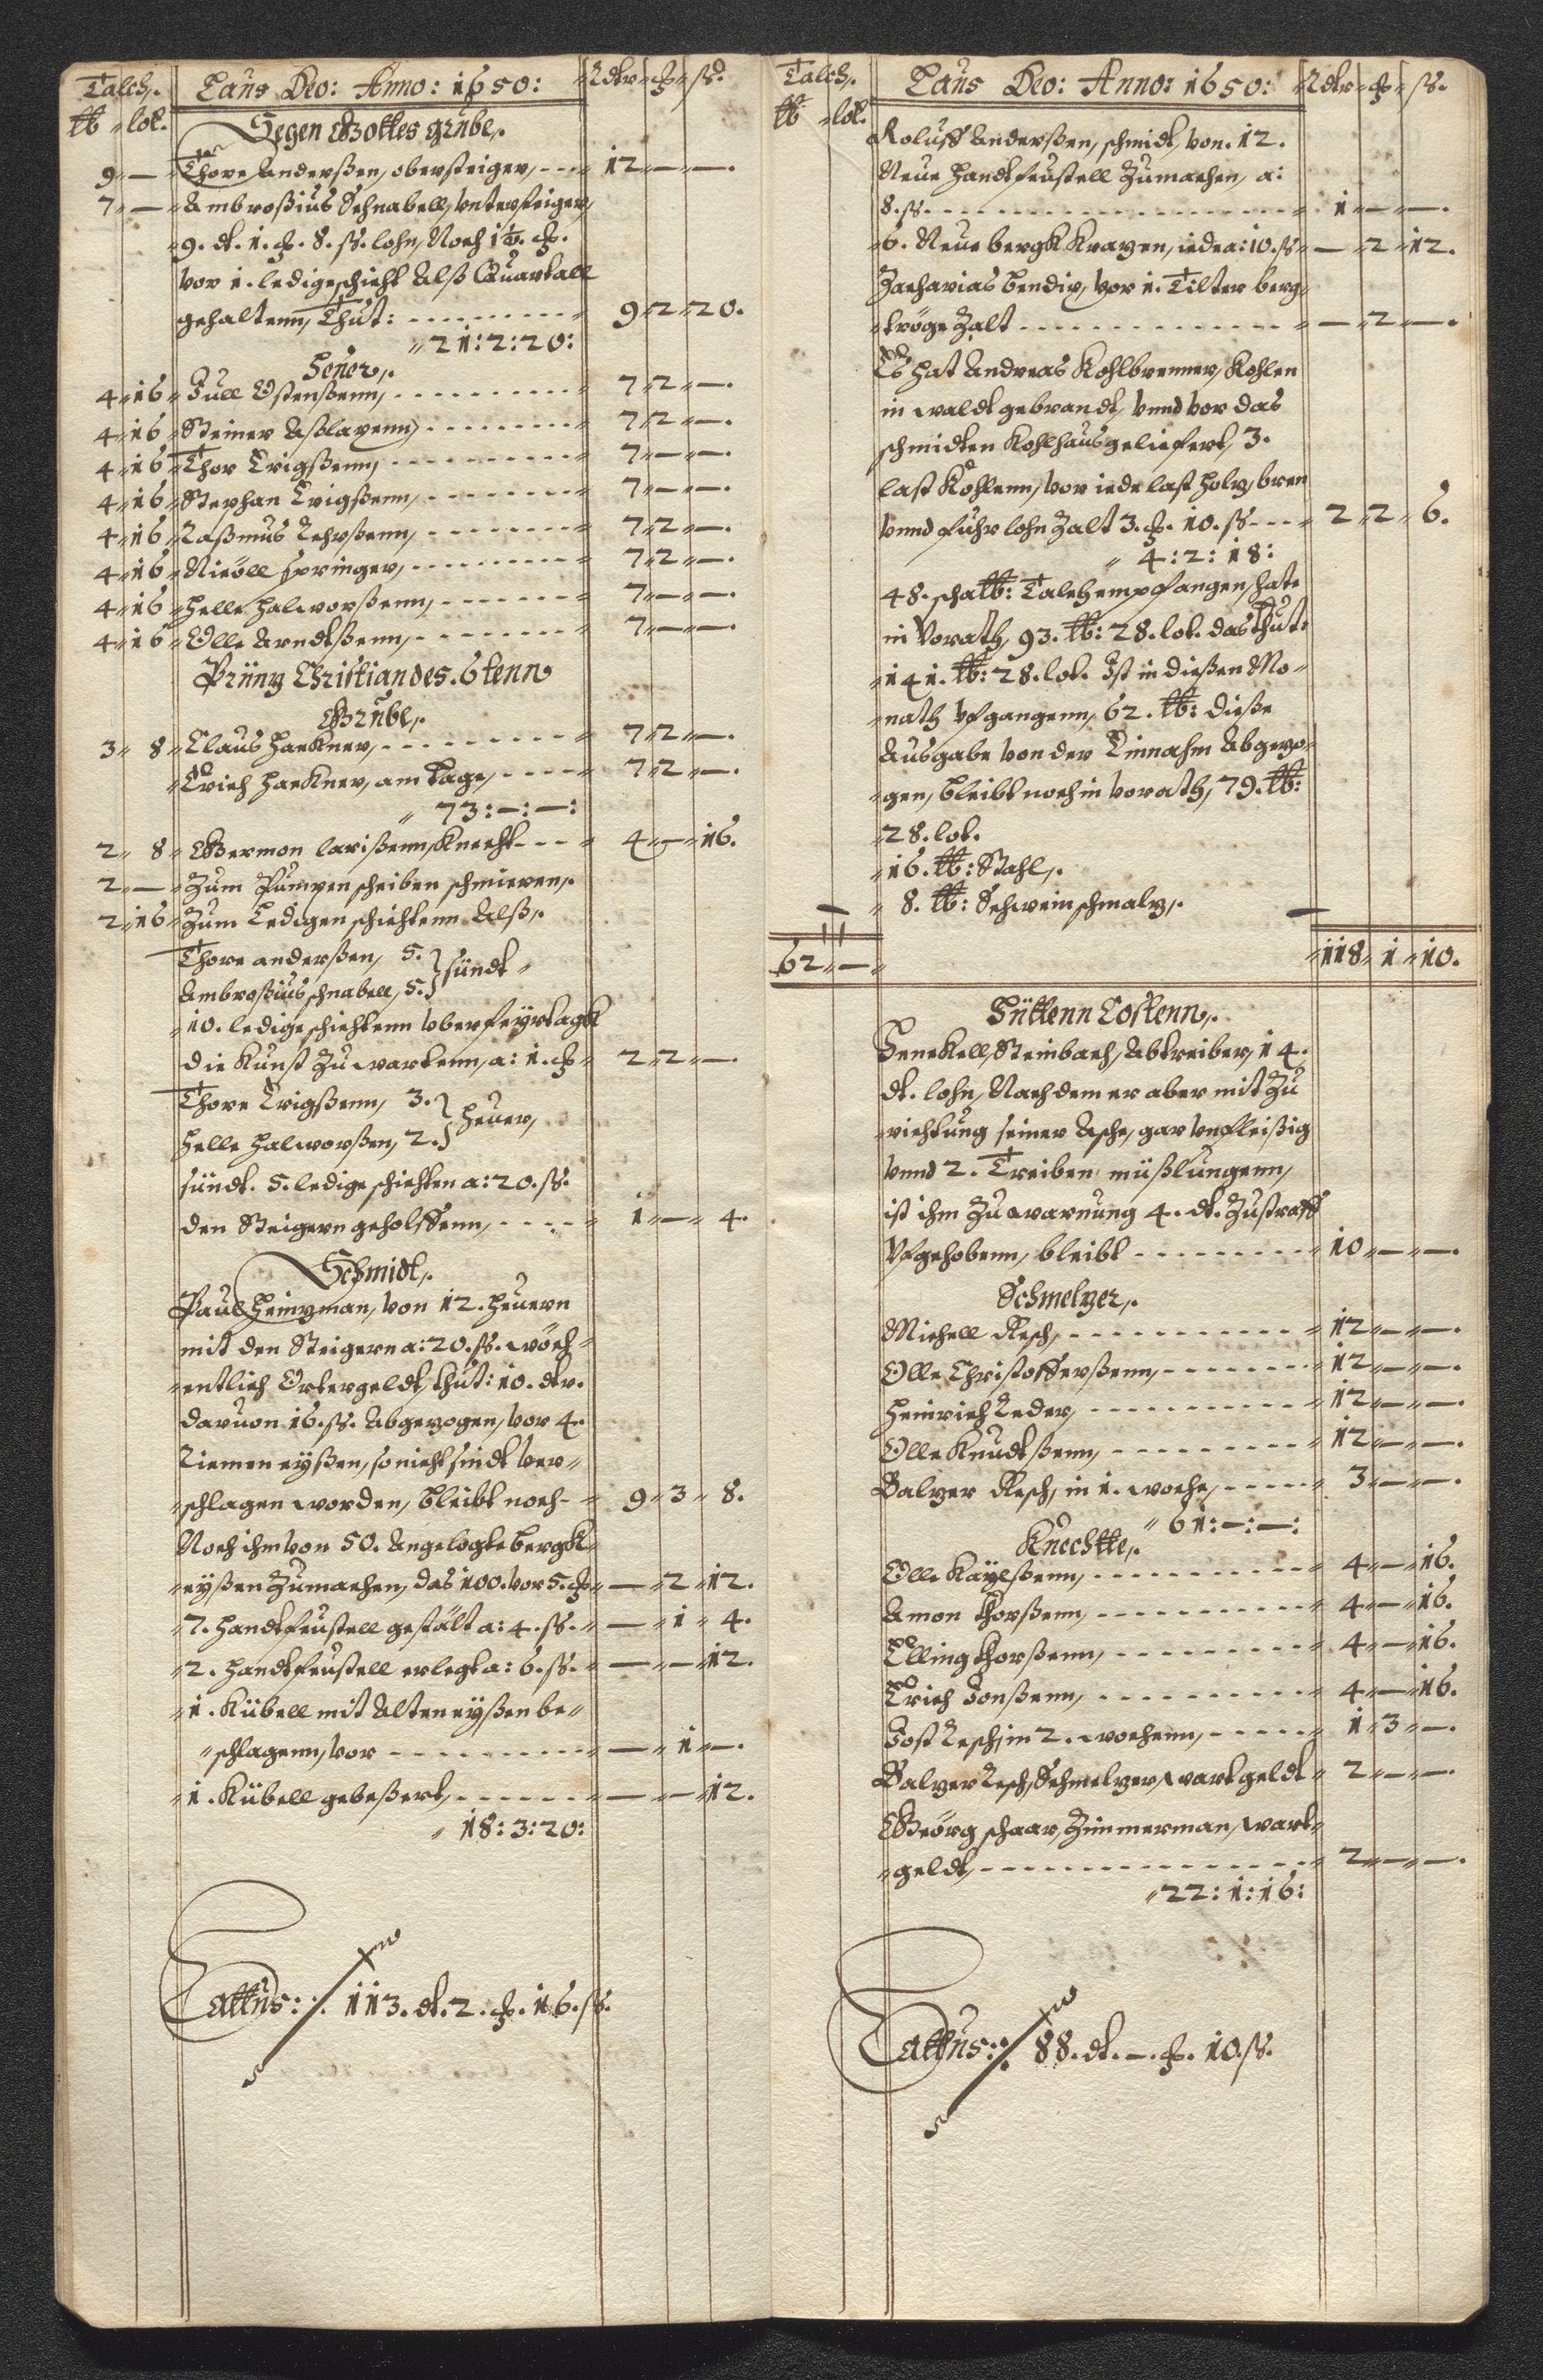 Talch. Laus Deo: Anno: 1650: Rdtr ₰ ß.
tb lot. Segen Gottes grube.
9 — Thore Anderßen, obersteiger, 12 — —.
7 — Ambrosius Schnabell, vntersteiger,
9. dt. 1. ₰. 8. ß. lohn, Noch
vor 1. ledige schicht Alß Quartall
gehaltenn, Thut: 9 2 20.
21: 2: 20:
Heuer.
4 16 Jull Ostenßenn, 7 2 —.
4 16 Steiner Aslaxenn, 7 2 —.
4 16 Thor Erigßenn, 7 — —.
4 16 Stephan Erigßenn, 7 — —.
4 16 Raßmus Lehrßenn, 7 2 —.
4 16 Nicöll springer, 7 2 —.
4 16 Helle Halworßenn, 7 — —.
4 16 Olle Arndtßenn, 7 — —.
Prinz Christian des. 5 tenn
Grube.
3 8 Claus Hackner, 7 2 —.
Erich Hackner, am tage, 7 2 —.
73: —: —:
2 8 Germon larißenn, Knecht 4 — 16.
2 — Zum Pumpen scheiben schmieren.
2 16 Zum Ledigen schichtenn Alß.
Thore anderßen, 5. } sündt
Ambrosius schnabell, 5. }
10. ledige schichtenn vber feyrtagk
die Kunst zu wartenn, a: 1. ₰ 2 2 —.
Thore Erigßenn, 3. } heuer,
Helle halworßen, 2. }
sündt. 5. ledige schichten a: 20. ß.
den Steigern geholffenn, 1 — 4.
Schmidt.
Paul Heinzman, von 12. Heuern
mit den Steigern a: 20. ß. wöch
entlich Ortergeldt, thut: 10. dtr.
daruon 16. ß. Abgezogen, vor 4.
Riemen eyßen, so nicht sindt ver
schlagen worden, bleibt noch 9 3 8.
Noch ihm von 50. Angelogte bergk
eyßen zumachen, das 100. vor 5. ₰ — 2 12.
7. handtfeustell gestält a: 4. ß. — 1 4.
2. handtfeustell erlegt a: 6. ß. — — 12.
1. Kübell mit Alten eyßen be
schlagenn, vor — 1 —.
1. Kübell gebeßert, — — 12.
18: 3: 20:
Lattus: 113. dt. 2. ₰. 16. ß.
Talch. Laus Deo: Anno: 1650: Rdtr ₰ ß.
tb lot. Roluff Anderßen, schmidt, von. 12.
Neue handtfeustell zumachen, a:
8. ß. 1 — —.
6. Neue bergk Krazen, iede a: 10. ß — 2 12.
Zacharias bendix, vor 1. Tilter berg
tröge zalt — 2 —.
Es hat Andreas Kohlbrenner, Kohlen
in waldt gebrandt, vnnd vor das
schmidten Kohlhaus geliefert, 3.
last Kohlenn, vor iede last holz, bren
vnnd fuhr lohn zalt 3. ₰. 10. ß 2 2 6.
4: 2: 18:
48. scha tb: Talch empfangen, hate
in Vorath, 93. tb: 28. lot. das thut:
141. tb: 28. lot. Ist in dießen Mo
nath vfgangenn, 62. tb: dieße
Ausgabe von der Einnahm Abgezo
gen, bleibt noch in vorath, 79. tb:
28. lot.
16. tb: Stahl.
8. tb: Schwein schmalz.
62 — 118 1 10.
Hüttenn Costenn.
Henckell, Steinbach, Abtreiber, 14.
dt. lohn, Nach dem er aber mit zu
richtung seiner Asche, gar vnfleißig
vnnd 2. Treiben müßlungenn,
ist ihm zu warnung 4. dt. zu straff
Vfgehobenn, bleibt 10 — —.
Schmelzer.
Michell Resch, 12 — —.
Olle Christofferßenn, 12 — —.
Heinrich Reder, 12 — —.
Olle Knudtßenn, 12 — —.
Balzer Resch, in 1. woche, 3 — —.
61: —: —:
Knechtte.
Olle Kaylßenn, 4 — 16.
Amon thorßenn, 4 — 16.
Elling thorßenn, 4 — 16.
Erich Jonßenn, 4 — 16.
Jost Resch, in 2. wochenn, 1 3 —.
Balzer Resch, Schmelzer, wartgeldt 2 — —.
Geörg schaar, Zimmerman, wart
geldt, 2 — —.
22: 1: 16:
Lattus: 88. dt. —. ₰. 10. ß.